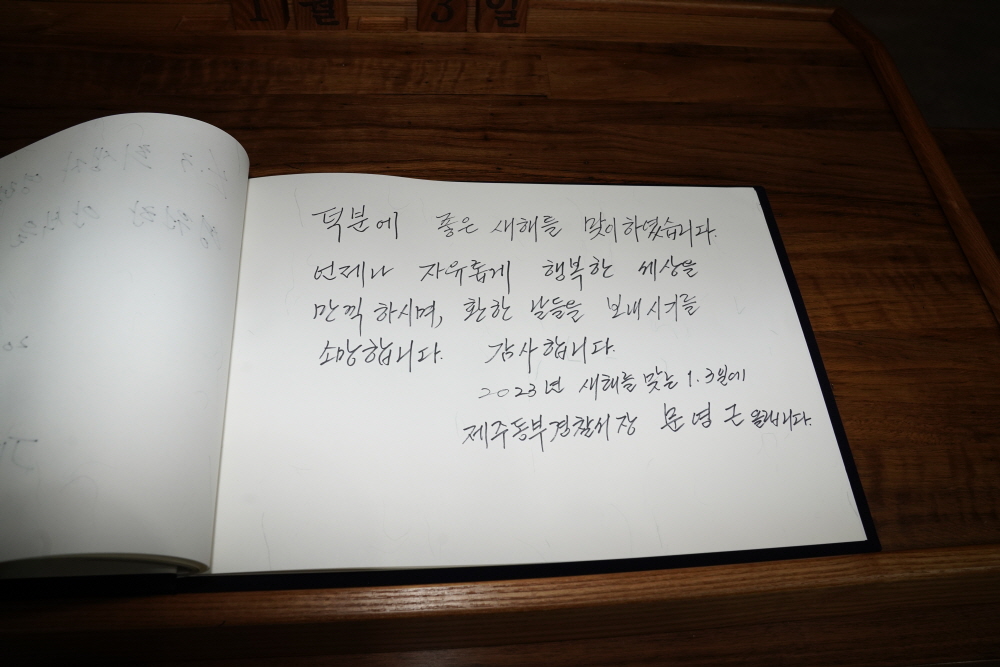 1 월 3 일
덕분에 좋은 새해를 맞이하였습니다.
언제나 자유롭게 행복한 세상을
만끽 하시며, 환한 날들을 보내시기를
소망합니다. 감사합니다.
2023년 새해를 맞는 1. 3일에
제주동부경찰서장 문영근 올립니다.